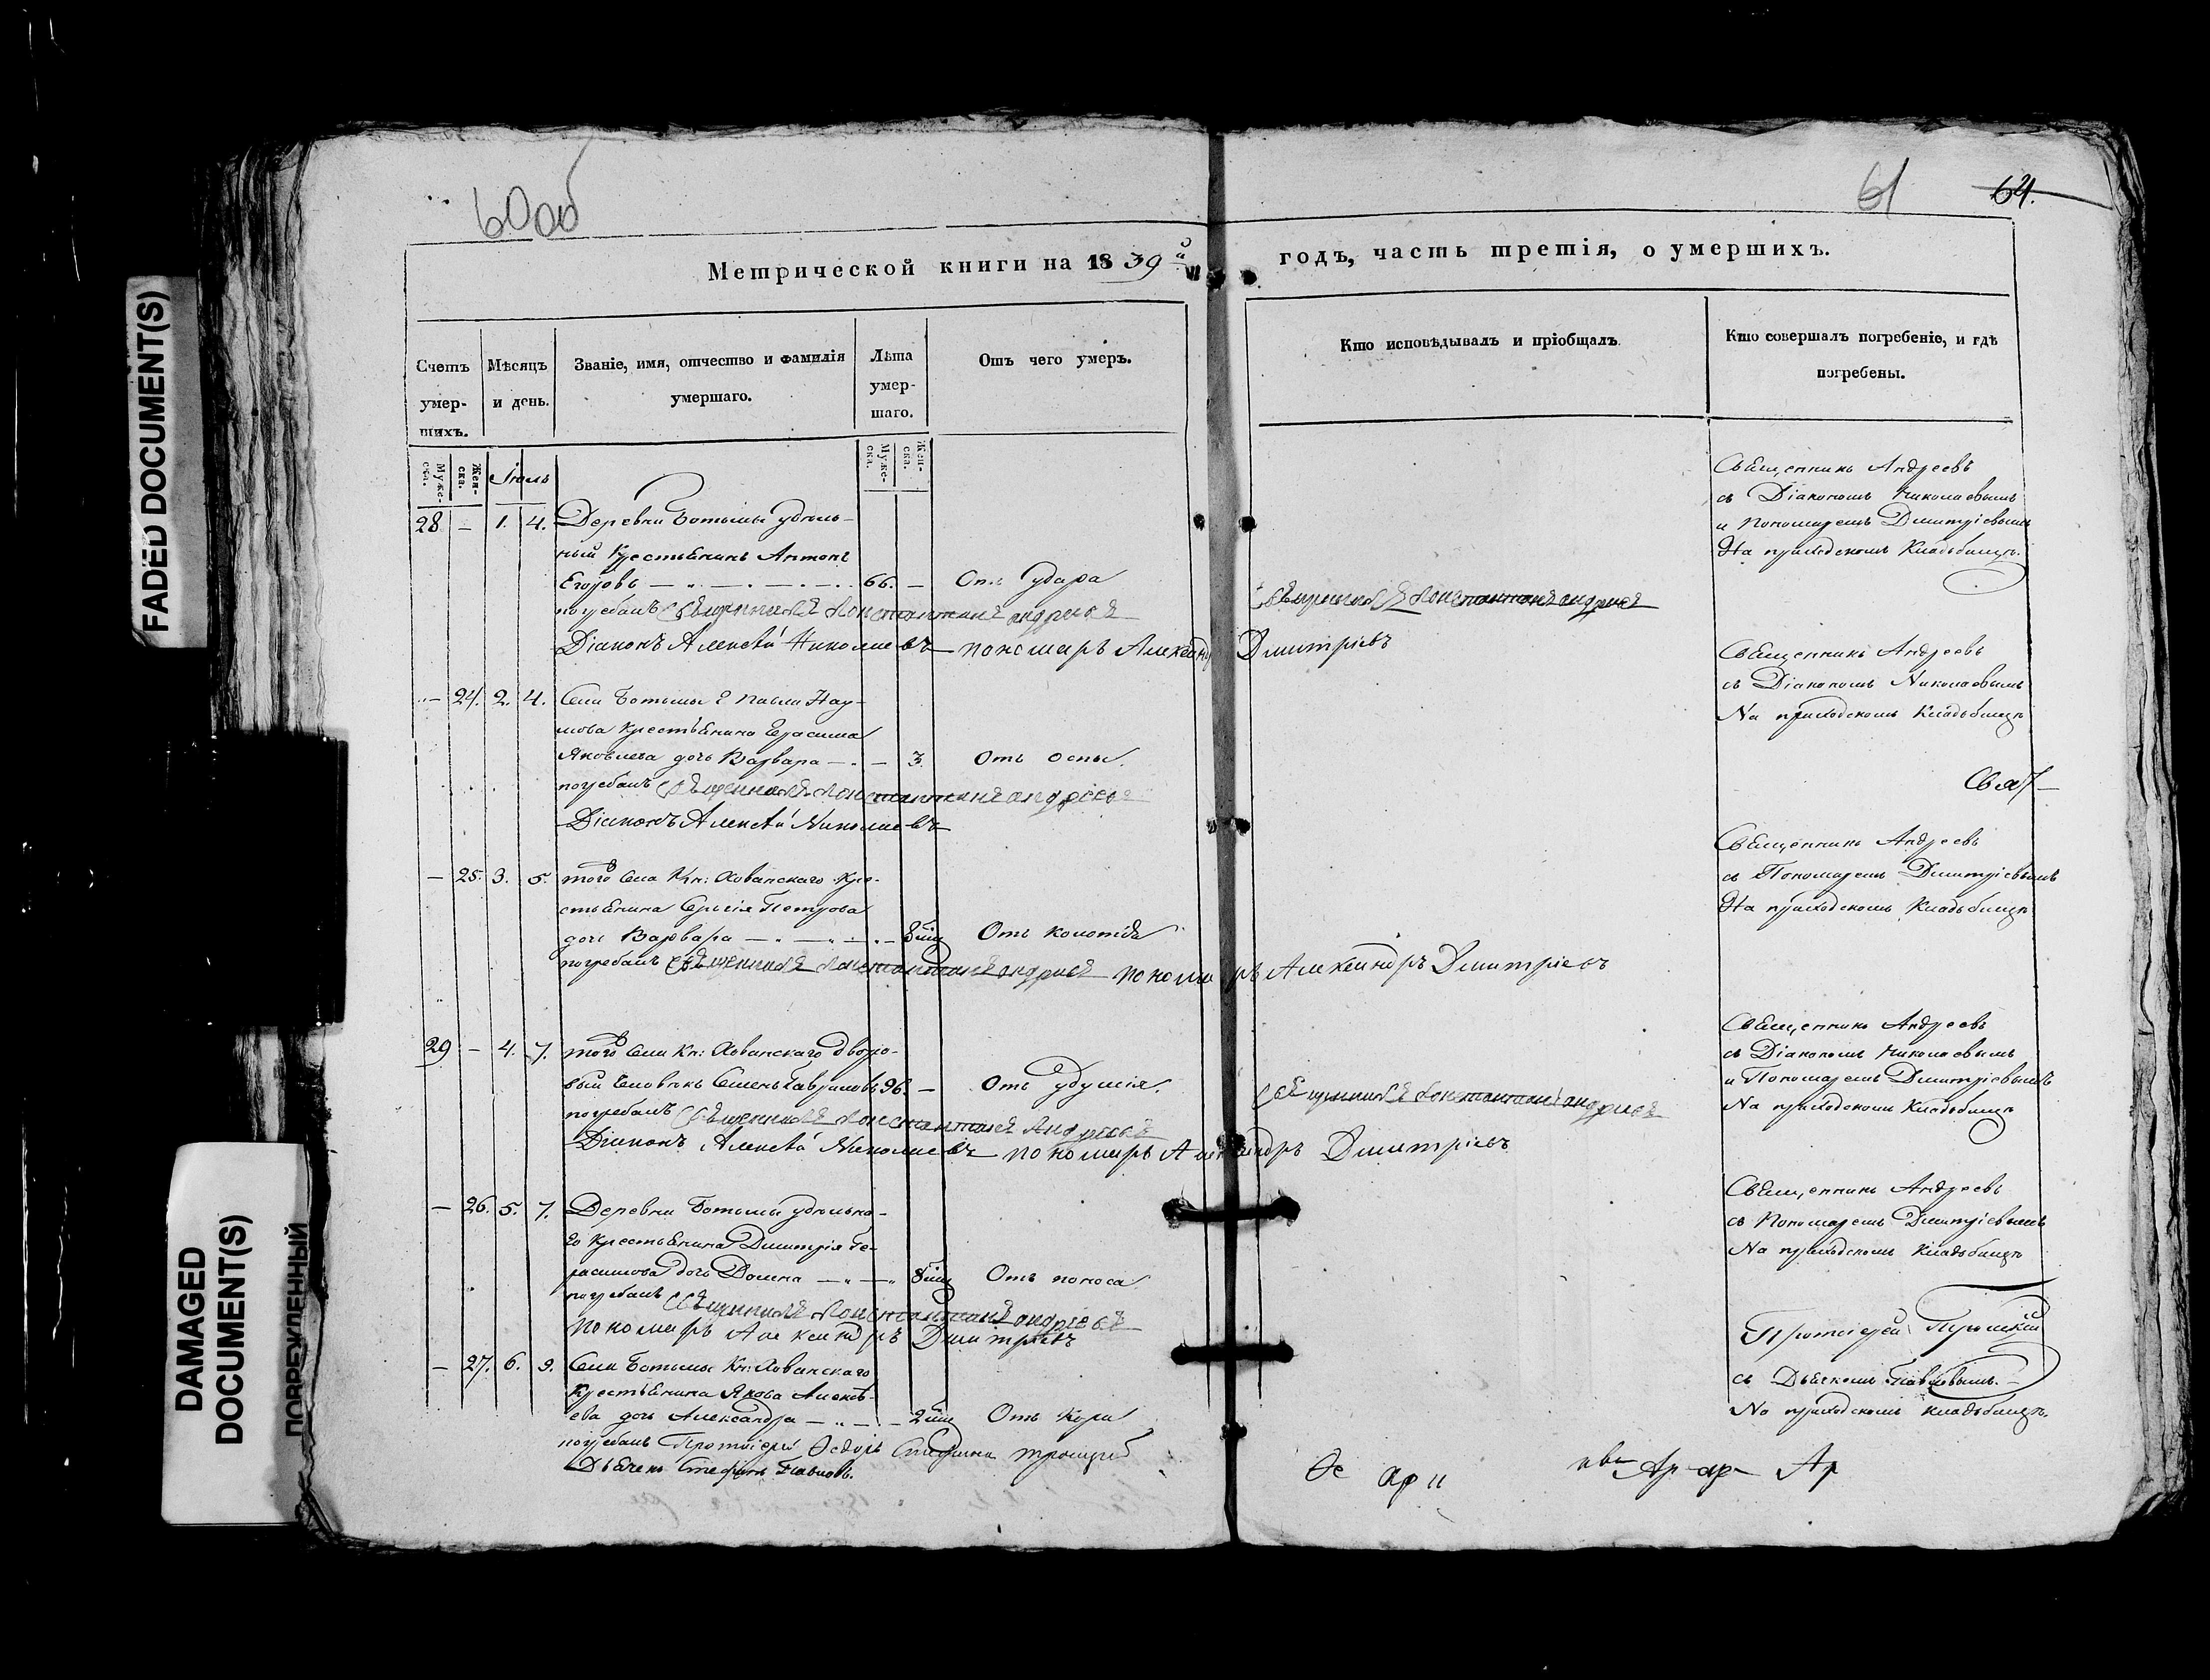 FADED DOCUMENT(S)
DAMAGED
DOCUMENT(S)
ПОВРЕЖДЕННЫЙ
60 об
61
64.
Метрической книги на 1839й
годъ, часть третія, о умершихъ.
Счетъ умер-шихъ.
Мѣсяцъ и день.
Званіе, имя, отчество и фамилія умершаго.
Лѣта умер-шаго.
Отъ чего умеръ.
Кто исповѣдывалъ и пріобщалъ
Кто совершалъ погребеніе, и гдѣ погребены.
Муже-ска.
Жен-ска.
Іюль
Муже-ска.
Жен-ска.
28 — 1. 4. Деревни Ботьмы удѣль-
ный Крестьянинъ Антонъ
Егоровъ 66. — Отъ удара
погребалъ Священникъ Констаптинъ Андреевъ
Діаконъ Алексѣй Николаевъ пономарь Александръ Дмитріевъ
Священникъ Константинъ Андреевъ
Священникъ Андреевъ
съ Діакономъ Николаевымъ
и Пономаремъ Дмитріевымъ
На приходскомъ Кладбищѣ.
— 24. 2. 4. Села Ботьмы Г Павла Нау-
мова Крестьянина Герасима
Яковлева дочь Варвара — 3. Отъ оспы.
погребалъ Священникъ Константинъ Андреевъ
Діаконъ Алексѣй Николаевъ
Священникъ Андреевъ
съ Діакономъ Николаевымъ
На приходскомъ Кладбищѣ
Свя
— 25. 3. 5. того Села Кн: Хованскаго Кре-
стьянина Сергія Петрова
дочь Варвара — 8 мц Отъ колотья
погребалъ Священникъ Константинъ Андреевъ пономарь Александръ Дмитріевъ
Священникъ Андреевъ
съ Пономаремъ Дмитріевымъ
На приходскомъ Кладбищѣ
29 — 4. 7. того Села Кн: Хованскаго дворо-
вый Человѣкъ Семенъ Гавриловъ 96. — Отъ удушія.
погребалъ Священникъ Константинъ Андреевъ
Діаконъ Алексѣй Николаевъ пономарь Александръ Дмитріевъ
Священникъ Константинъ Андреевъ
Священникъ Андреевъ
съ Діакономъ Николаевымъ
и Пономаремъ Дмитріевымъ
На приходскомъ Кладбищѣ
— 26. 5. 7. Деревни Ботьмы удѣльна-
го Крестьянина Дмитрія Ге-
расимова дочь Домна 8 мц Отъ поноса
погребалъ Священникъ Константинъ Андреевъ
пономарь Александръ Дмитріевъ
Священникъ Андреевъ
съ Пономаремъ Дмитріевымъ
На приходскомъ Кладбищѣ
— 27. 6. 9. Села Ботьмы Кн: Хованскаго
Крестьянина Якова Алексѣ-
ева дочь Александра 2 мц Отъ Кори
погребалъ Протоіерей Ѳедоръ
Дьячекъ Стефанъ Павловъ.
Протоіерей
съ Дьячкомъ Павловымъ.
На приходскомъ кладбищѣ.
Ѳе ар
Ар ар Ар